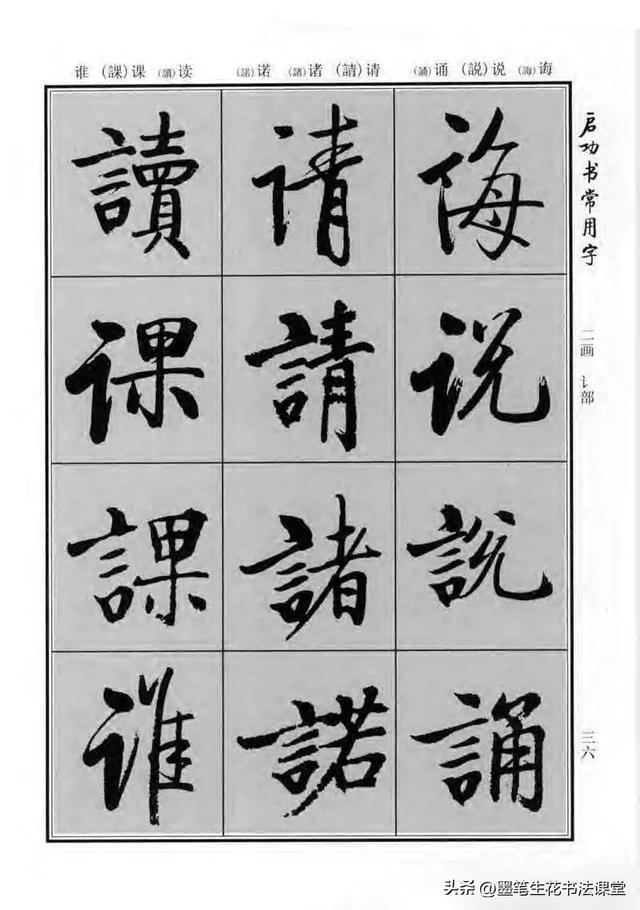 谁 (課)课 (讀)读 (諾)诺 (諸)诸 (請)请 (誦)诵 (説)说 (誨)诲
启功书常用字
二画 讠部
三六
诲说説誦
请請諸諾
讀课課谁
头条 @墨笔生花书法课堂